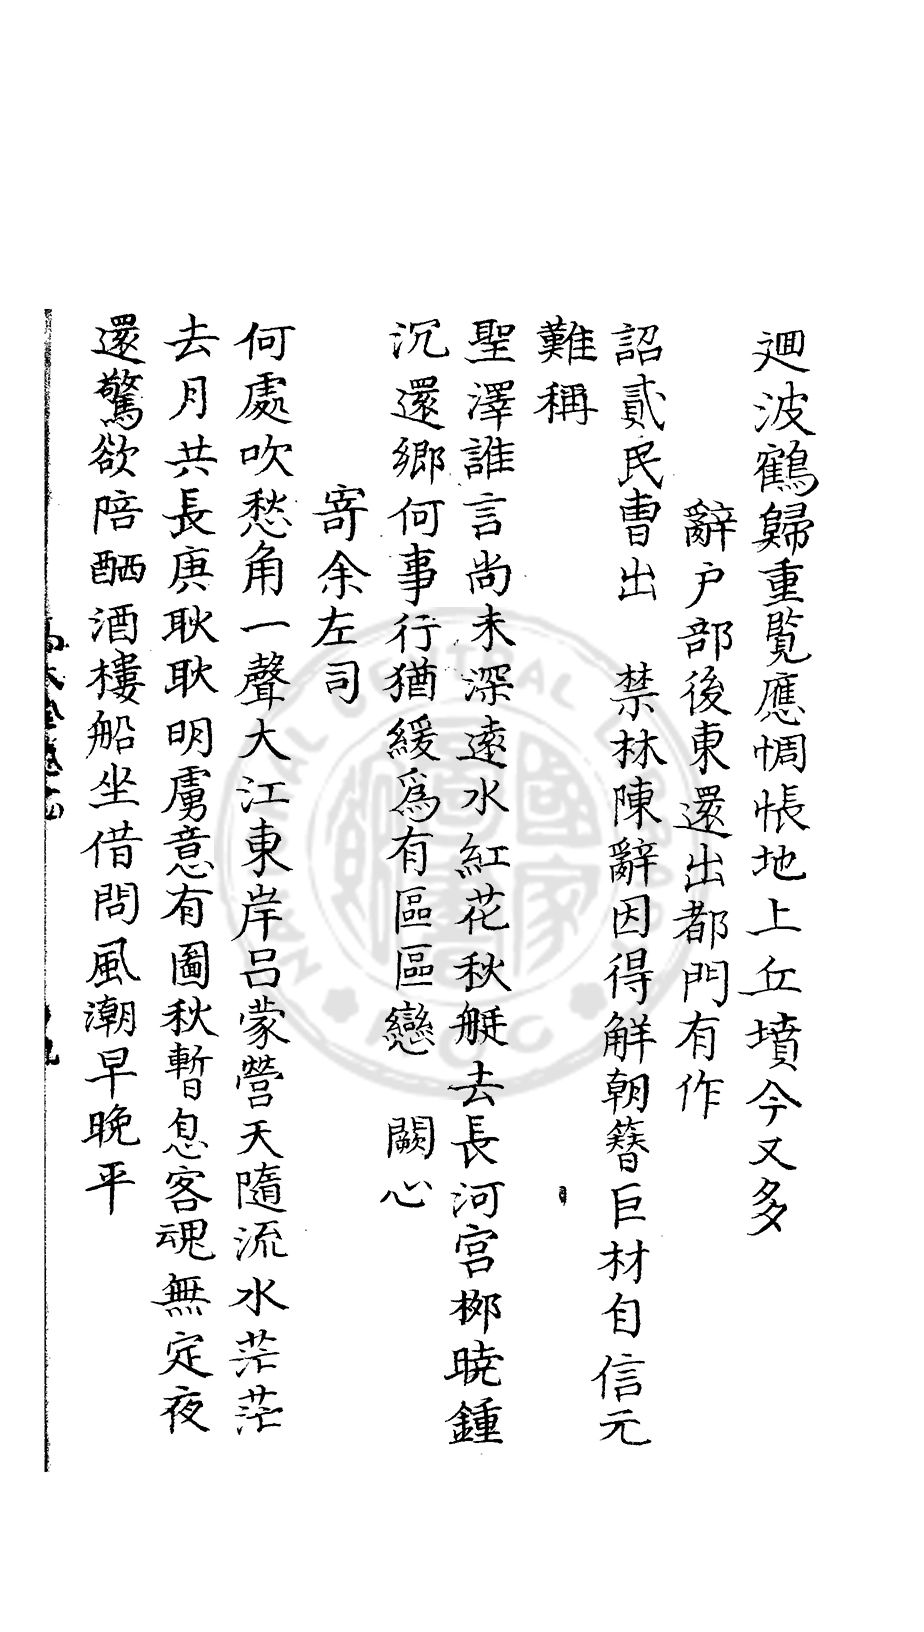 廻波鶴歸重覧應惆悵地上丘墳今又多
辭户部後東還出都門有作
詔貳民曹出　禁林陳辭因得觧朝簮巨材自信元
難稱
聖澤誰言尚未深遠水紅花秋艇去長河宫栁暁鍾
沉還鄉何事行猶緩爲有區區戀　闕心
寄余左司
何處吹愁角一聲大江東岸吕蒙營天隨流水茫茫
去月共長庚耿耿明虜意有圖秋暫息客魂無定夜
還驚欲陪酾酒樓船坐借問風潮早晚平